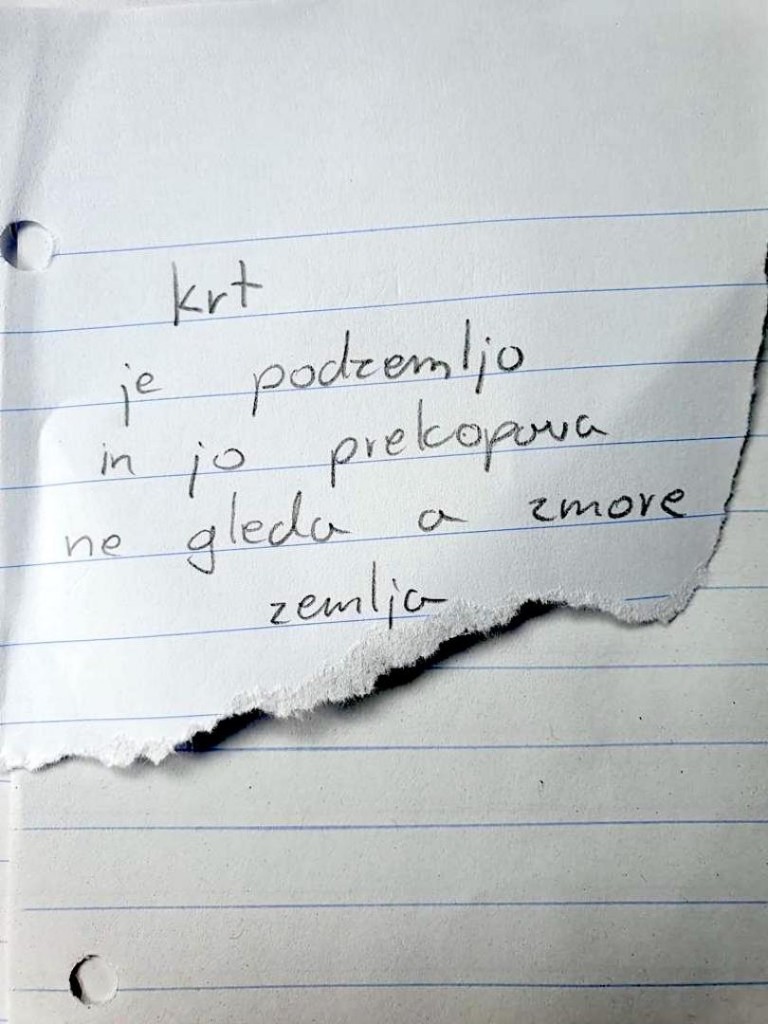 krt
je podzemljo
in jo prekopava
ne gleda a zmore
zemlja